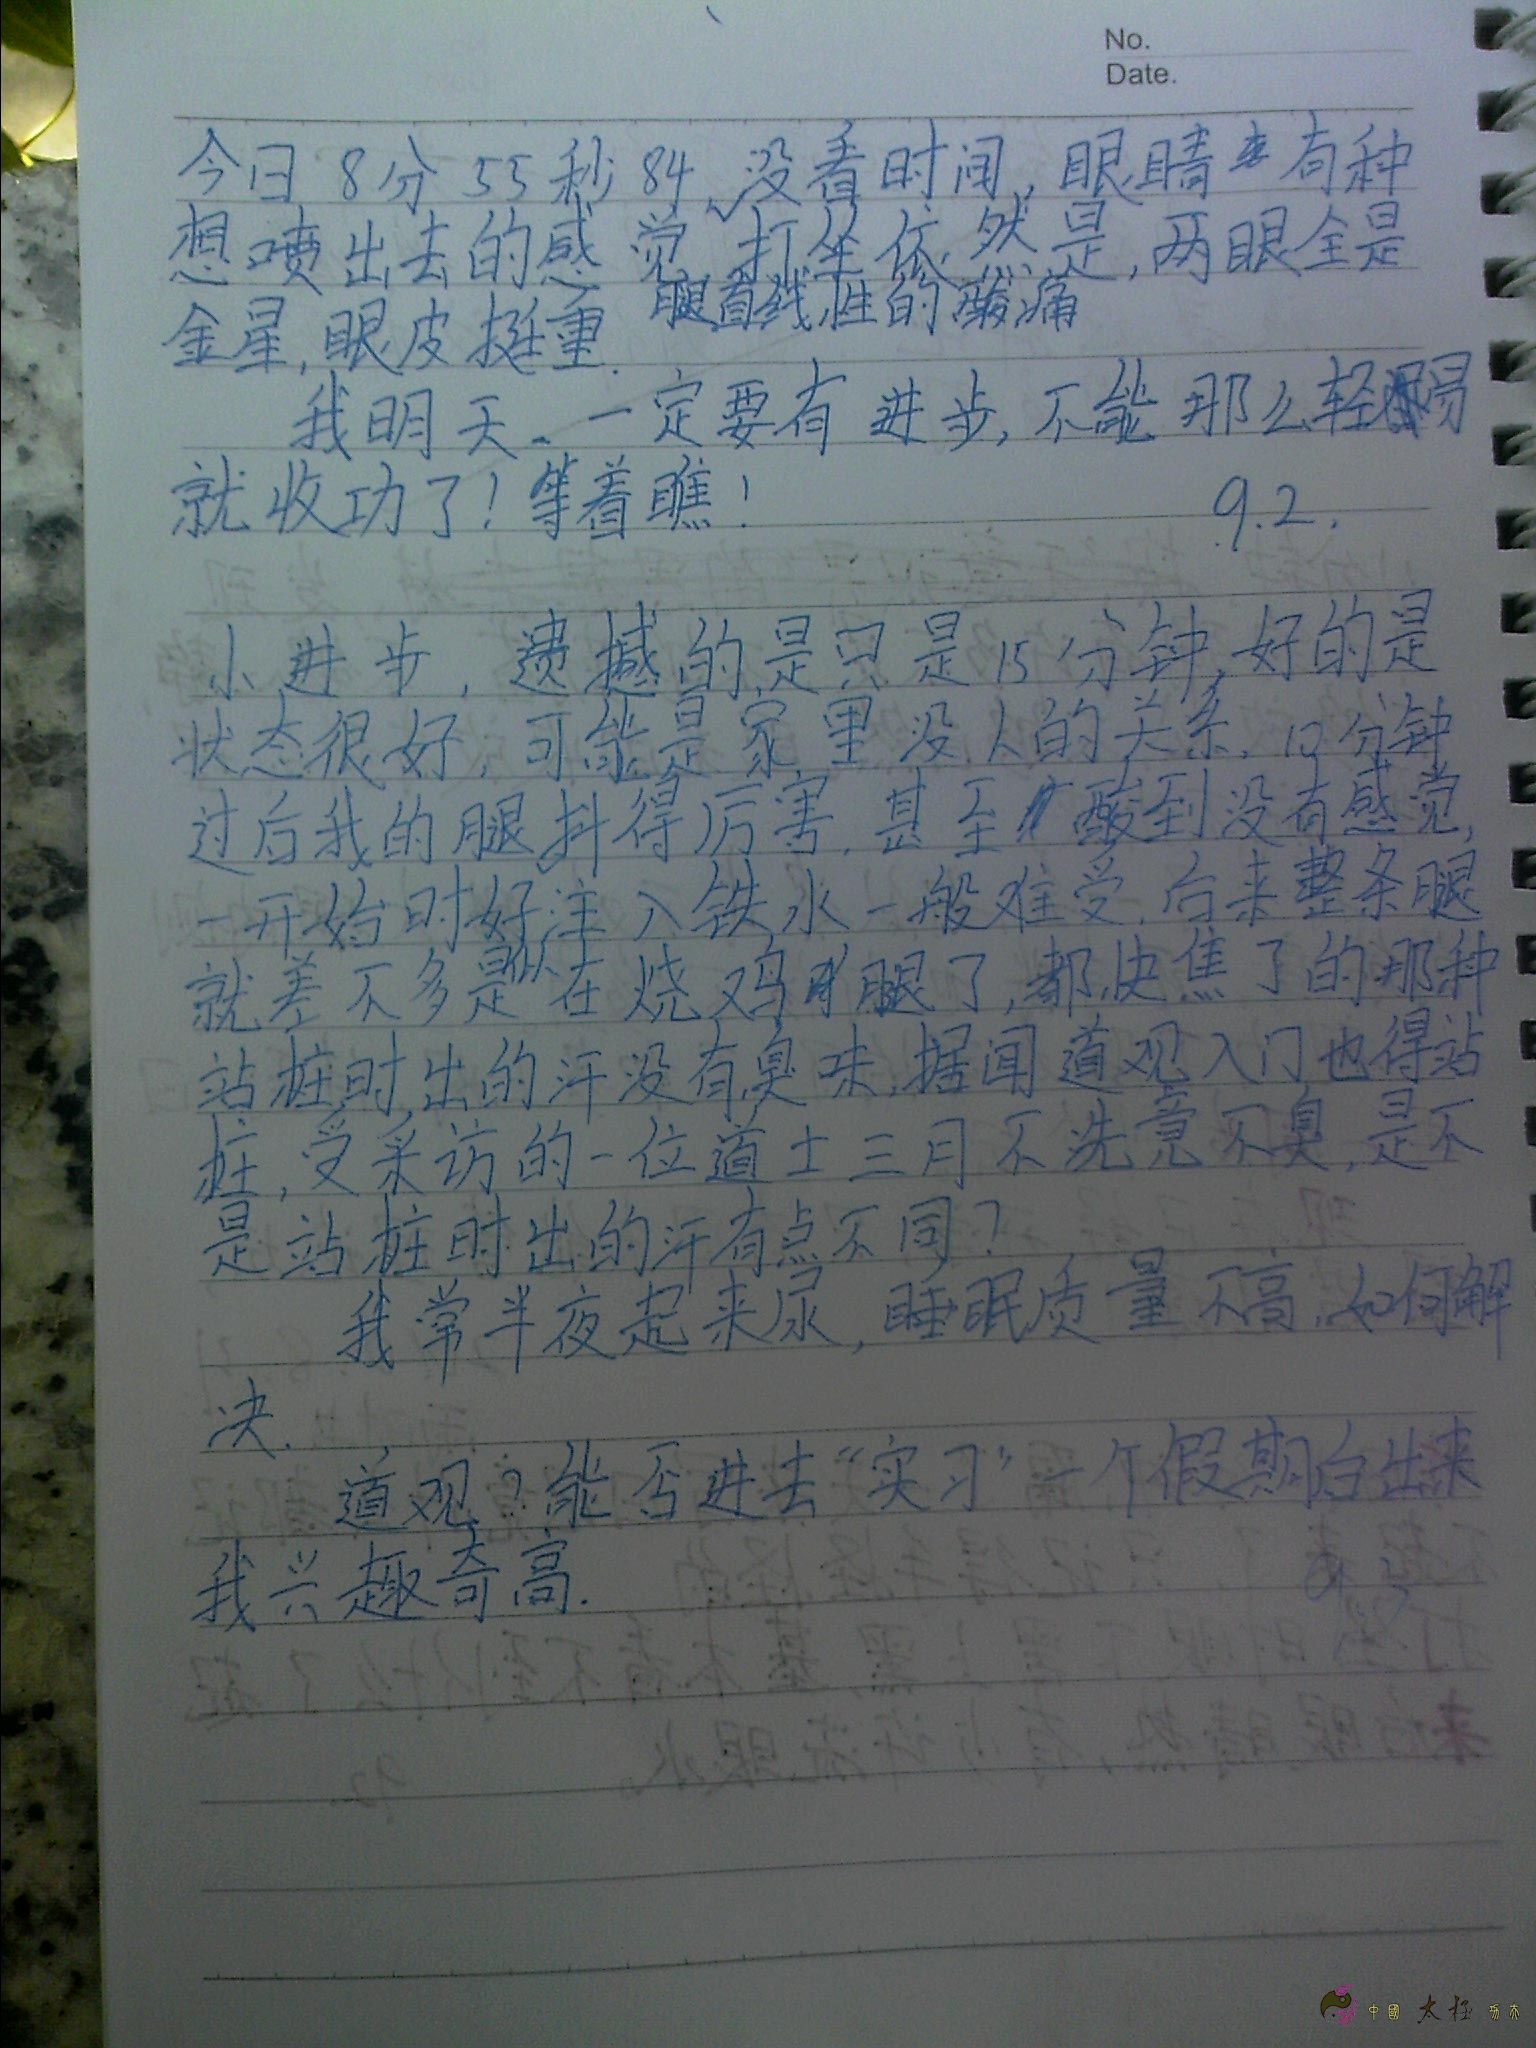 No.
Date.
今日8分55秒84,没看时间,眼睛有种
想喷出去的感觉 打坐依然是,两眼全是
腿有线性的酸痛
金星,眼皮挺重.
我明天、一定要有进步,不能那么轻易
就收功了!等着瞧!
9.2.
小进步,遗撼的是只是15分钟,好的是
状态很好,可能是家里没人的关系,12分钟
过后我的腿抖得厉害,甚至酸到没有感觉,
一开始时好注入铁水一般难受,后来整条腿
就差不多是似在烧鸡腿了,都快焦了的那种
站桩时出的汗没有臭味,据闻道观入门也得站
桩,受采访的一位道士三月不洗竟不臭,是不
是站桩时出的汗有点不同?
我常半夜起来尿,睡眠质量不高,如何解
决.
道观?能否进去“实习”一个假期后出来
我兴趣奇高.
中國太极